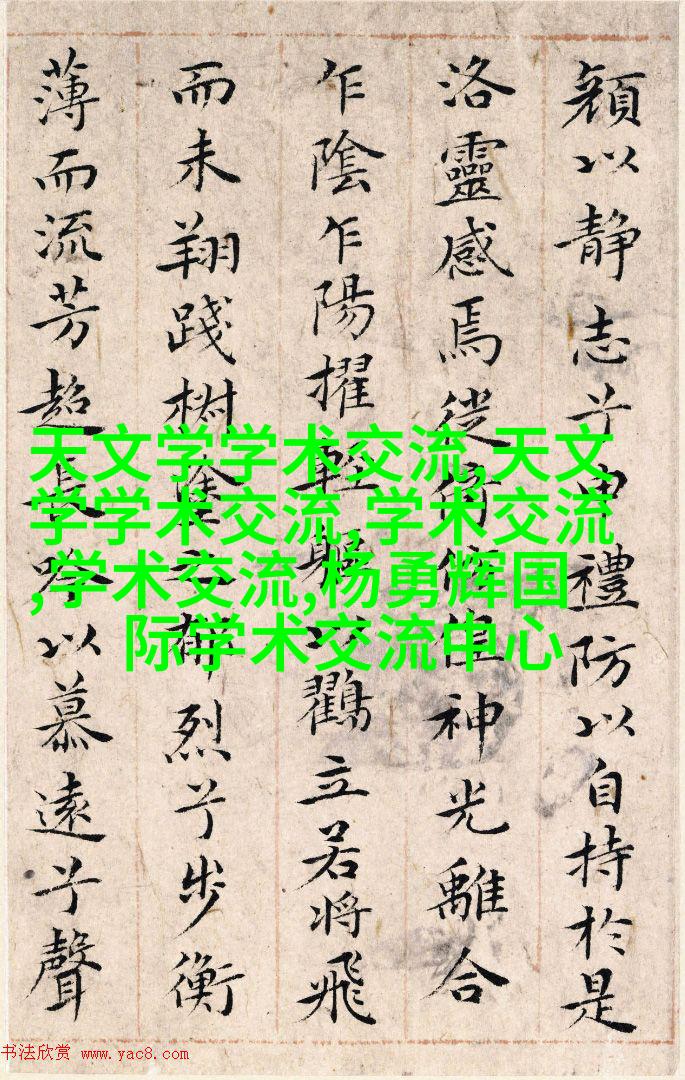 顏以静志兮申禮防以自持於是
洛靈感焉徙倚神光離合
乍陰乍陽擢輕軀以鸛立若将飛
而未翔踐椒塗之郁烈兮步衡
薄而流芳超長吟以慕遠兮聲
天文学学术交流,天文
学学术交流,学术交流
,学术交流,杨勇辉国
际学术交流中心
书法欣赏 www.yac8.com